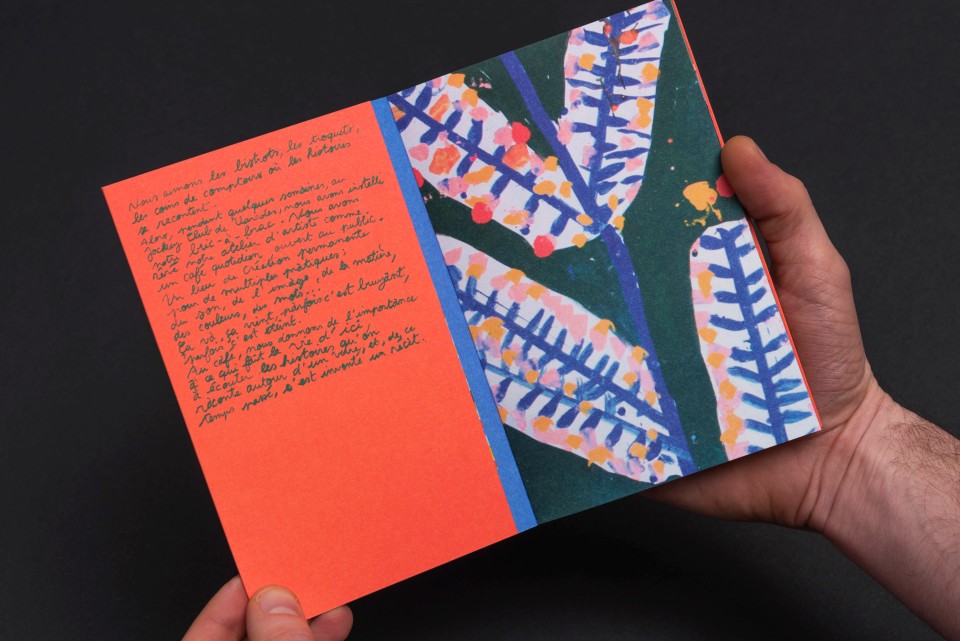 Nous aimons les bistrots, les troquets,
les coins de comptoirs où les histoires
se racontent.
Alors, pendant quelques semaines, au
Jockey Club de Vandes, nous avons installé
notre bric-à-brac. Nous avons
rêvé notre atelier d'artiste comme
un café quotidien ouvert au public.
Un lieu de création permanente
pour de multiples pratiques,
du son, de l'image, de la matière,
des couleurs, des mots...
Ça va, ça vient, parfois c'est bruyant,
parfois c'est éteint.
Au café, nous donnons de l'importance
à ce qui fait la vie d'ici,
à écouter les histoires qu'on
raconte autour d'un verre, et, de ce
temps passé, s'est inventé un récit.